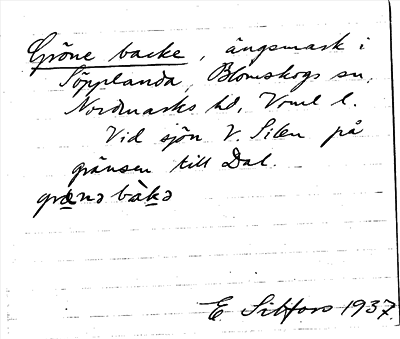 Gröne backe, ängsmark i
Söpplanda, Blomskogs sn,
Nordmarks hd, Vrml l.
Vid sjön V. Silen på
gränsen till Dal.
grænə bàkə
E Sibfors 1937.